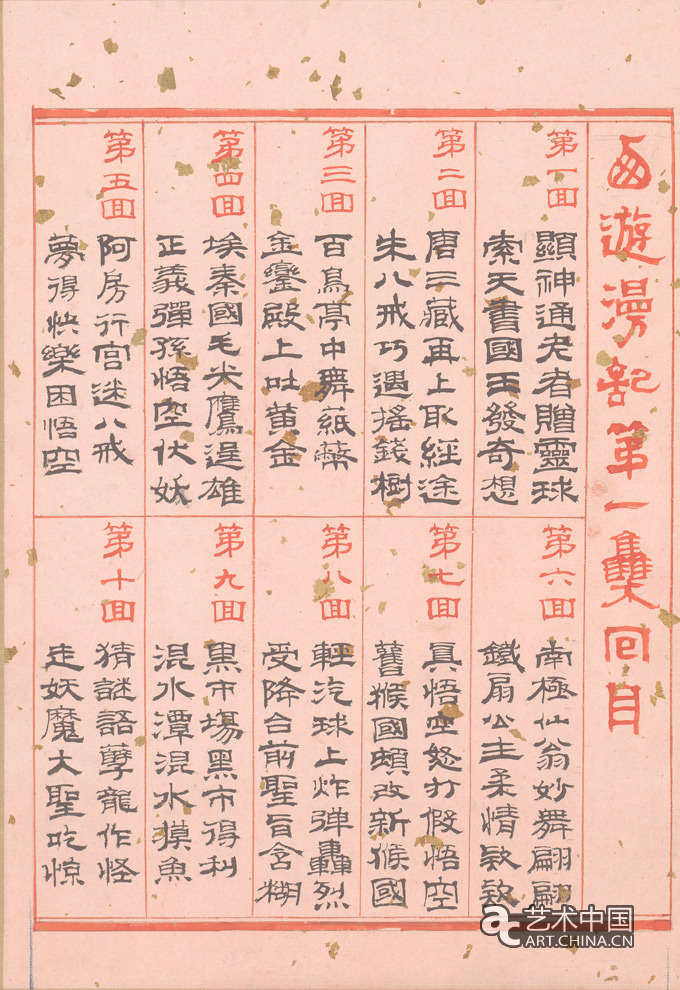 西遊漫記第一集回目
第一回
顯神通老者贈靈球
索天書國王發奇想
第二回
唐三藏再上取經途
朱八戒巧遇搖錢樹
第三回
百鳥亭中舞紙幣
金鑾殿上吐黄金
第四回
埃秦國毛尖鷹逞雄
正義彈孫悟空伏妖
第五回
阿房行宮迷八戒
夢得快樂困悟空
第六回
南極仙翁妙舞翩翩
鐵扇公主柔情款款
第七回
真悟空怒打假悟空
舊猴國頓改新猴國
第八回
輕汽球上炸弹轟烈
受降台前聖旨含糊
第九回
黑市場黑市得利
混水潭混水摸魚
第十回
猜謎語孽龍作怪
走妖魔大聖吃惊
艺术中国
ART.CHINA.CN